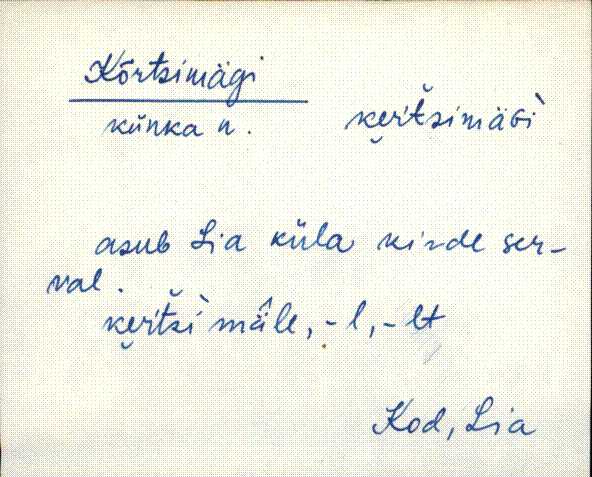 Kõrtsimägi
künka n. ke̮ŕtšimäGì
asub Lia küla kirde ser-
val.
ke̮ŕtšì mä̂le, -l, -lt
Kod, Lia